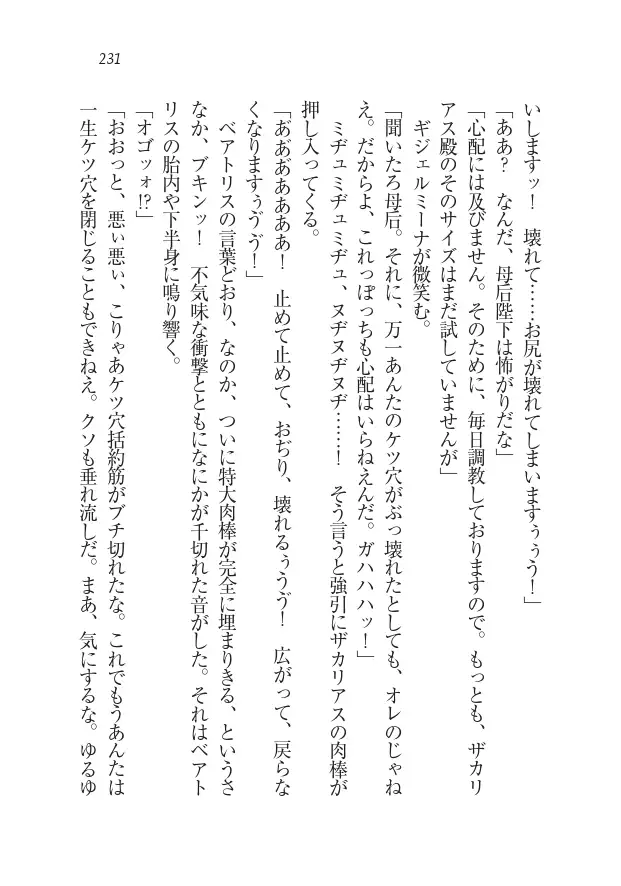 231
いしますッ！　壊れて……お尻が壊れてしまいますぅぅう！」
「ああ？　なんだ、母后陛下は怖がりだな」
「心配には及びません。そのために、毎日調教しておりますので。もっとも、ザカリ
アス殿のそのサイズはまだ試していませんが」
ギジェルミーナが微笑む。
「聞いたろ母后。それに、万一あんたのケツ穴がぶっ壊れたとしても、オレのじゃね
え。だからよ、これっぽっちも心配はいらねえんだ。ガハハハッ！」
ミヂュミヂュミヂュ、ヌヂヌヂヌヂ……！　そう言うと強引にザカリアスの肉棒が
押し入ってくる。
「あ゙あ゙あ゙あああああ！　止めて止めて、おぢり、壊れるぅうゔ！　広がって、戻らな
くなりますぅゔゔ！」
ベアトリスの言葉どおり、なのか、ついに特大肉棒が完全に埋まりきる、というさ
なか、ブキンッ！　不気味な衝撃とともになにかが千切れた音がした。それはベアト
リスの胎内や下半身に鳴り響く。
「オゴッォ!?」
「おおっと、悪ぃ悪ぃ、こりゃあケツ穴括約筋がブチ切れたな。これでもうあんたは
一生ケツ穴を閉じることもできねえ。クソも垂れ流しだ。まあ、気にするな。ゆるゆ